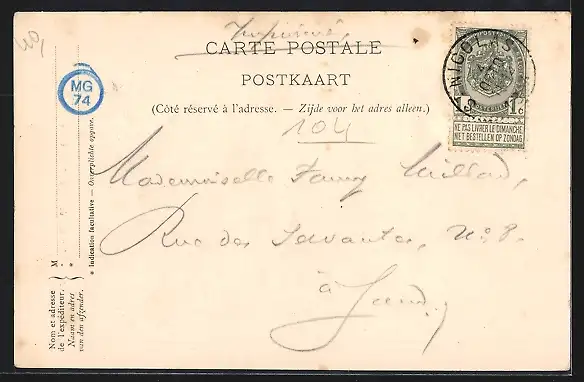 Imprimé
CARTE POSTALE
POSTKAART
(Côté réservé à l'adresse. — Zijde voor het adres alleen.)
104
Mademoiselle Fanny
Rue des Servantes, No 8.
à Gand,
MG
74
ST NICOLAS
POSTES
1c
NE PAS LIVRER LE DIMANCHE
NIET BESTELLEN OP ZONDAG
* Indication facultative — Onverplichte opgave.
M
Nom et adresse
de l'expéditeur.
Naam en adres
van den afzender.